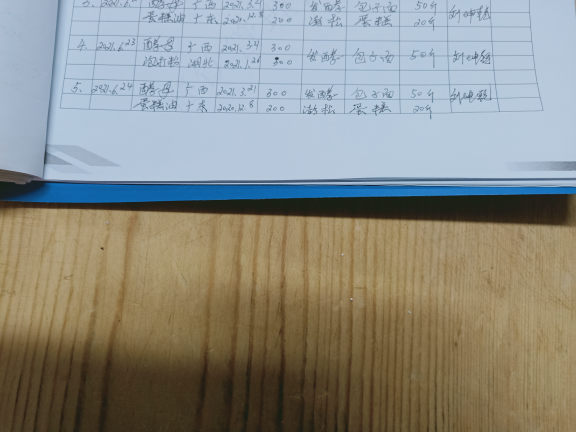 3. 酵母 广西 2021.3.4 300 发酵 包子面 50斤
蛋糕油 广东 2020.12.8 200 澎松 蛋糕 20斤
4. 2021.6.23 酵母 广西 2021.3.4 300 发酵 包子面 50斤
泡打粉 湖北 2021.1.26 300
5. 2021.6.24 酵母 广西 2021.3.21 300 发酵 包子面 50斤
蛋糕油 广东 2020.12.8 200 澎松 蛋糕 20斤